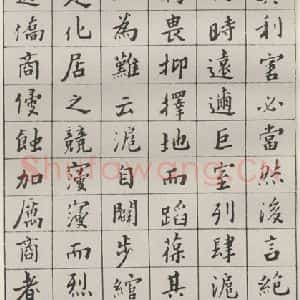 利害必當然後言絶
時遠邇巨室列肆滬
畏抑擇地而蹈葆其
為難云滬自闢步綰
化居之競寖寖而烈
僑商侵蝕加厲商者
Shufawang.CN